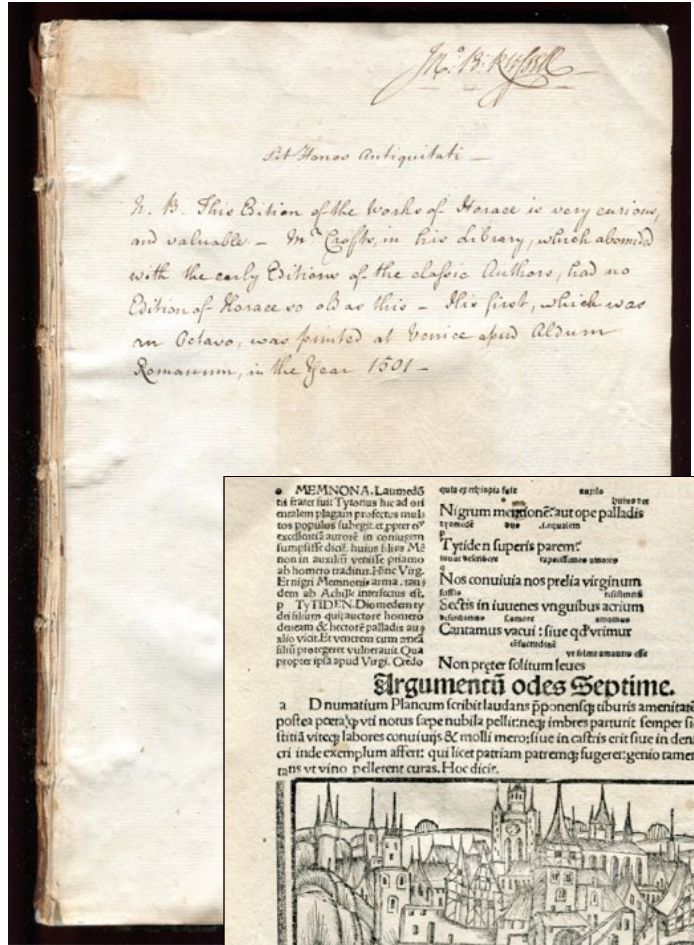 Jno. B: Russell
Sit Honos Antiquitati —
N. B. This Edition of the Works of Horace is very curious,
and valuable — Mr. Crofts, in his Library, which abounded
with the early Editions of the classic Authors, had no
Edition of Horace so old as this — His first, which was
an Octavo, was printed at Venice apud Aldum
Romanum, in the Year 1501 —
MEMNONA. Laumedō
tis frater fuit Tytonus hic ad ori
entalem plagam profectus mul
tos populos subegit. et ppter
excellentiā aurorē in coniugem
sumpsisse dicit. huius filius Mē
non in auxiliū venisse priamo
ab homero traditur. Hinc Virg.
Et nigri Memnonis arma. tan
dem ab Achille interfectus est.
p TYTIDEN. Diomedem ty
dei filium qui auctore homero
deneam & hectorē palladis au
xilio vicit. Et venerem cum ęneā
filiū protegeret vulnerauit. Qua
propter ipsa apud Virgi. Credo
quis ex ethiopia fuit auxilo
Nigrum merionē: aut ope palladis
p
Tytiden superis parem?
q
Nos conuiuia nos prelia virginum
Sectis in iuuenes vnguibus acrium
Cantamus vacui: siue qd vrimur
Non pręter solitum leues
Argumentū odes Septime.
a D numatium Plancum scribit laudans pponensq; tiburis amenitatē
postea poeta q vti notus sæpe nubila pellit: neq; imbres parturit semper si
stitiā vitęq; labores conuiuijs & molli mero: siue in castris erit siue in den
cri inde exemplum affert: qui licet patriam patremq; fugeret: genio tamen
tans vt vino pellerent curas. Hoc dicit.